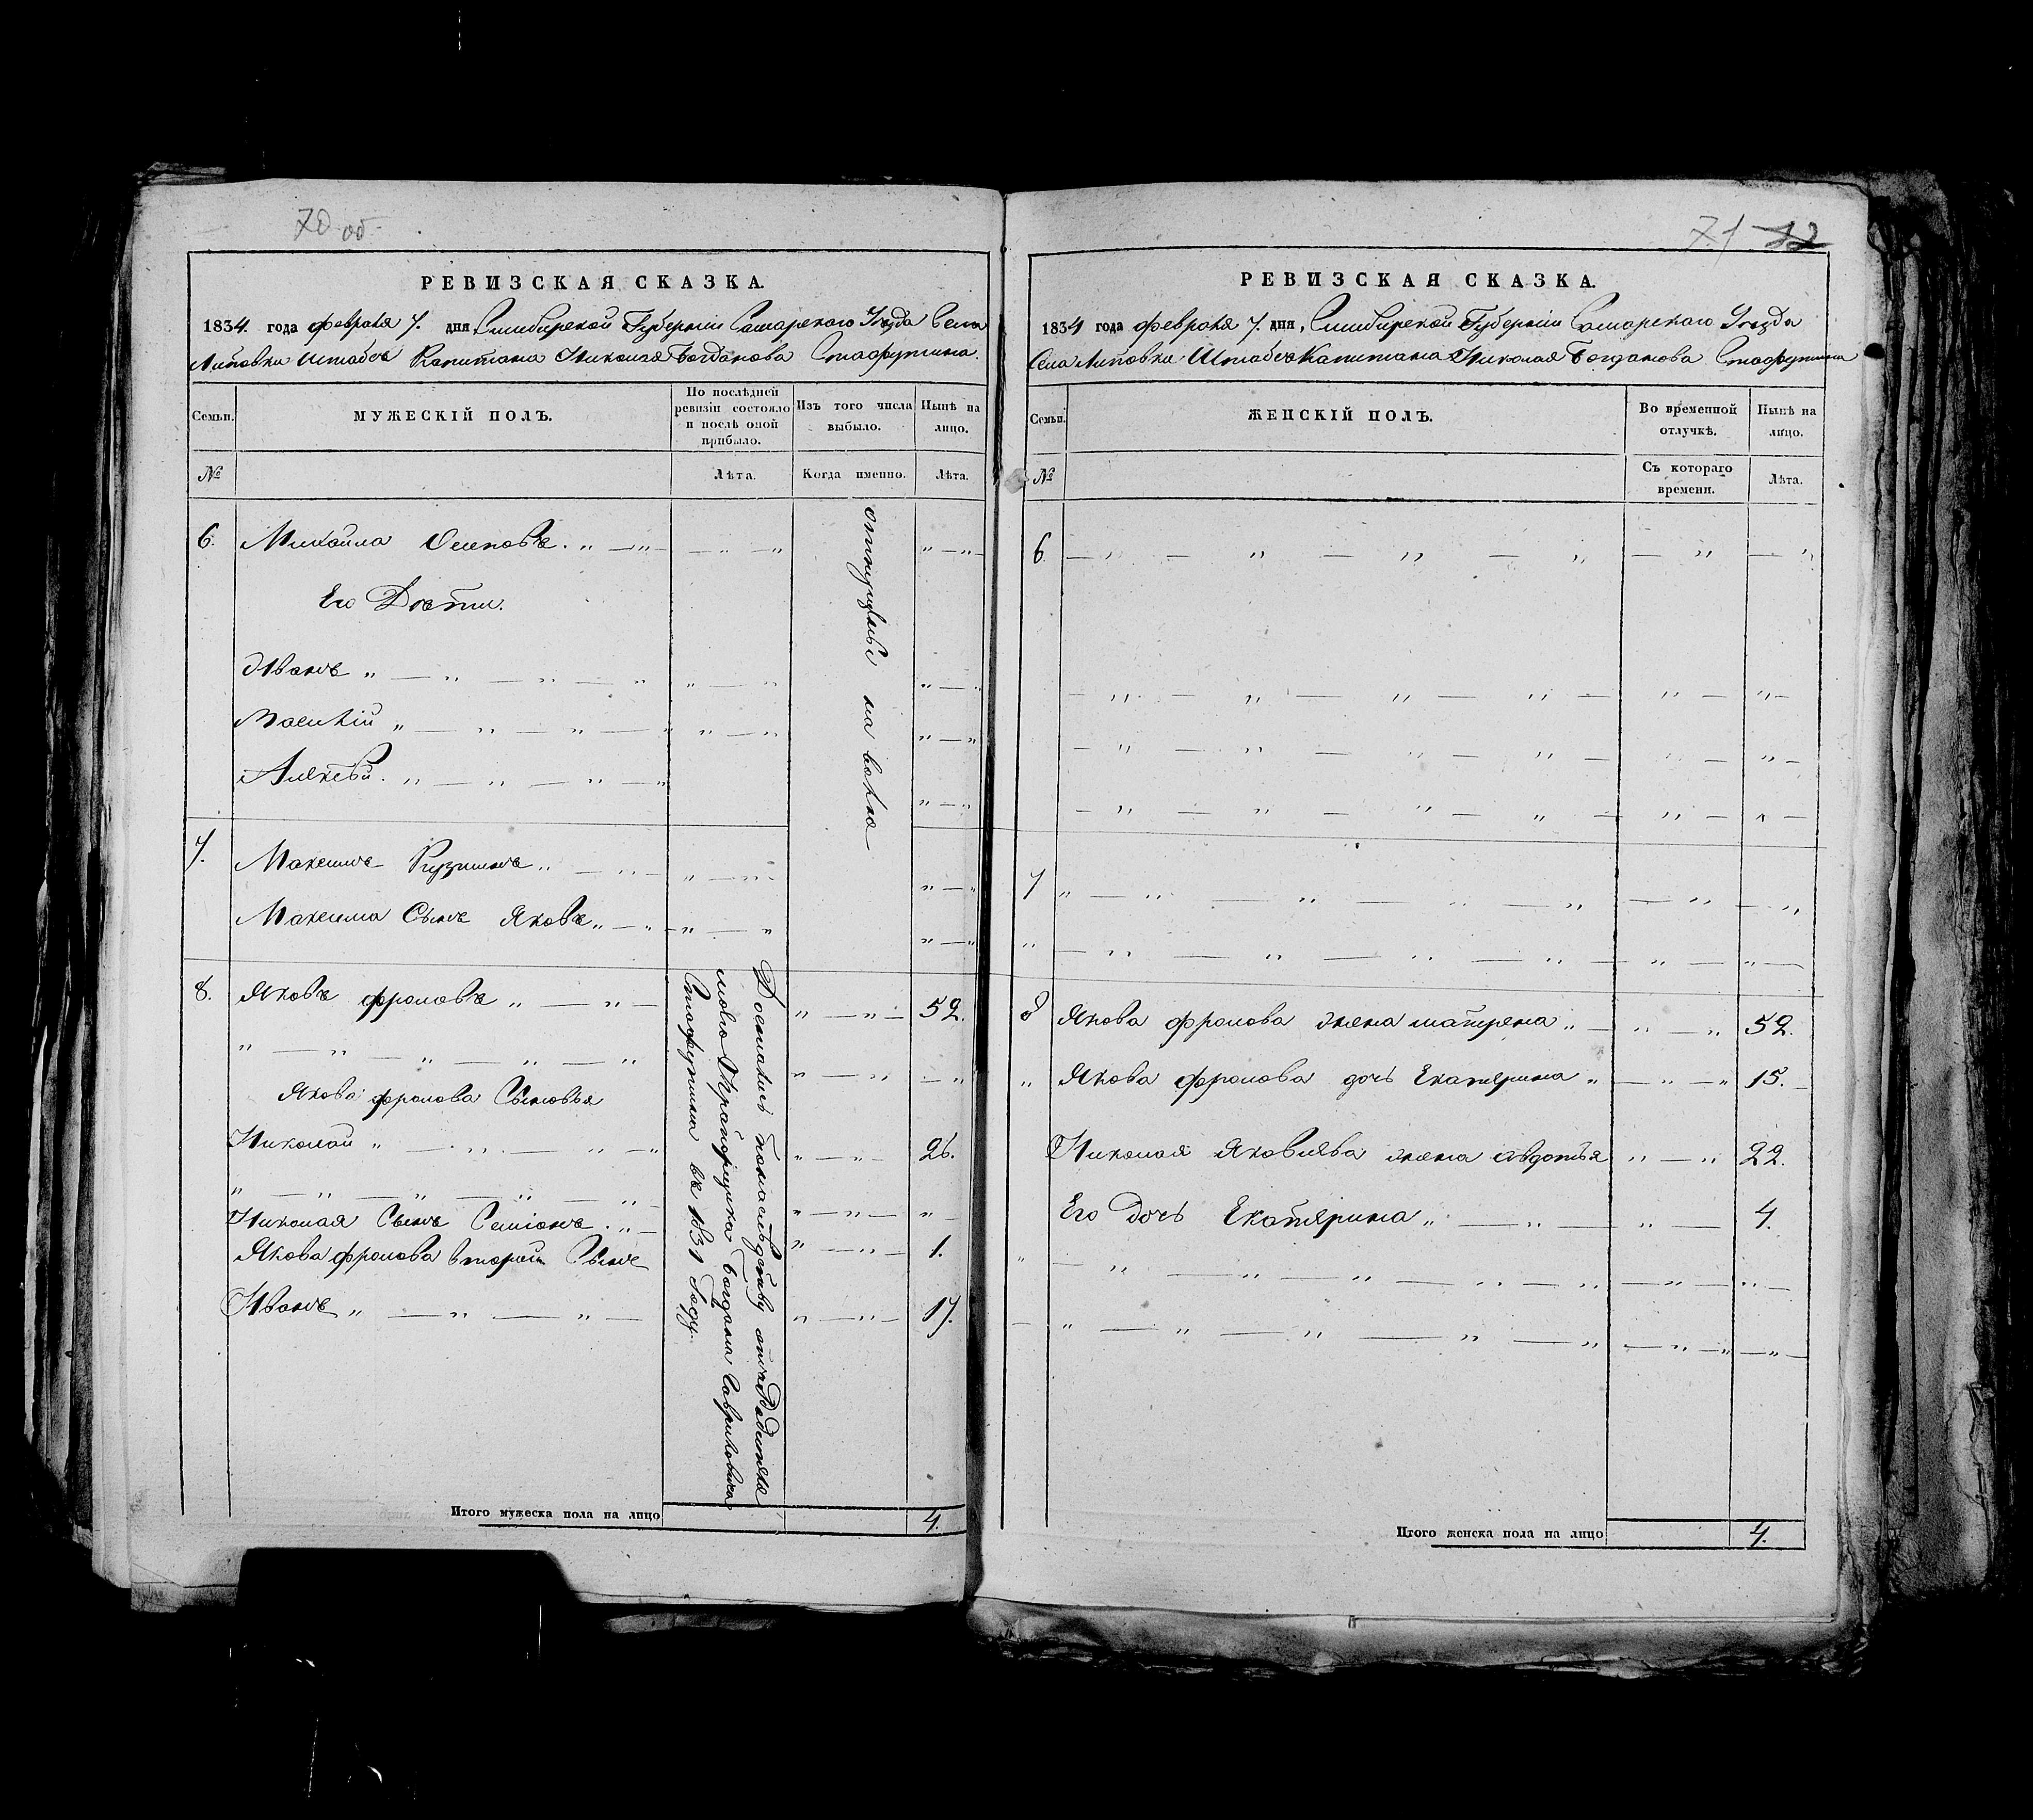 70 об.
РЕВИЗСКАЯ СКАЗКА.
1834. года февраля 7. дня, Симбирской Губернии Самарского Уезда Села
Липовки Штабсъ Капитана Николая Богданова
По послѣдней
ревизіи состояло
и послѣ оной
прибыло.
Изъ того числа
выбыло.
Нынѣ на
лицо.
Семьи.
МУЖЕСКІЙ ПОЛЪ.
№
Лѣта.
Когда именно.
Лѣта.
6. Михайла Осиповъ. „ — „ —
Его Дѣти.
Иванъ „ — „ — „ — „
Василій „ — „ — „ — „
Алексѣй. „ — „ — „ — „
отпущены на волю
7. Максимъ Кузминъ „ — „ —
Максима Сынъ Яковъ „ — „ —
8. Яковъ фроловъ „ — „ — 52.
Якова фролова Сыновья
Николай „ — „ — „ — „ 26.
Николая Сынъ Семіонъ. „ — 1.
Якова фролова второй Сынъ
Иванъ „ — „ — „ — 17.
Достались по наслѣдству отъ Родителя
моего Прапорщика Богдана Гавриловича
въ 1831 Году.
Итого мужеска пола на лицо 4.
71 72
РЕВИЗСКАЯ СКАЗКА.
1834 года февраля 7. дня, Симбирской Губерніи Самарского Уезда
Села Липовки Штабсъ Капитана Николая Богданова
Семьи.
ЖЕНСКІЙ ПОЛЪ.
Во временной
отлучкѣ.
Нынѣ на
лицо.
№
Съ котораго
времени.
Лѣта.
6
7
8 Якова фролова жена матрена „ — 52.
„ Якова фролова дочь Екатерина „ — 15.
Николая Яковлева жена авдотья „ — „ 22.
Его дочь Екатерина „ — „ — 4.
Итого женска пола на лицо 4.